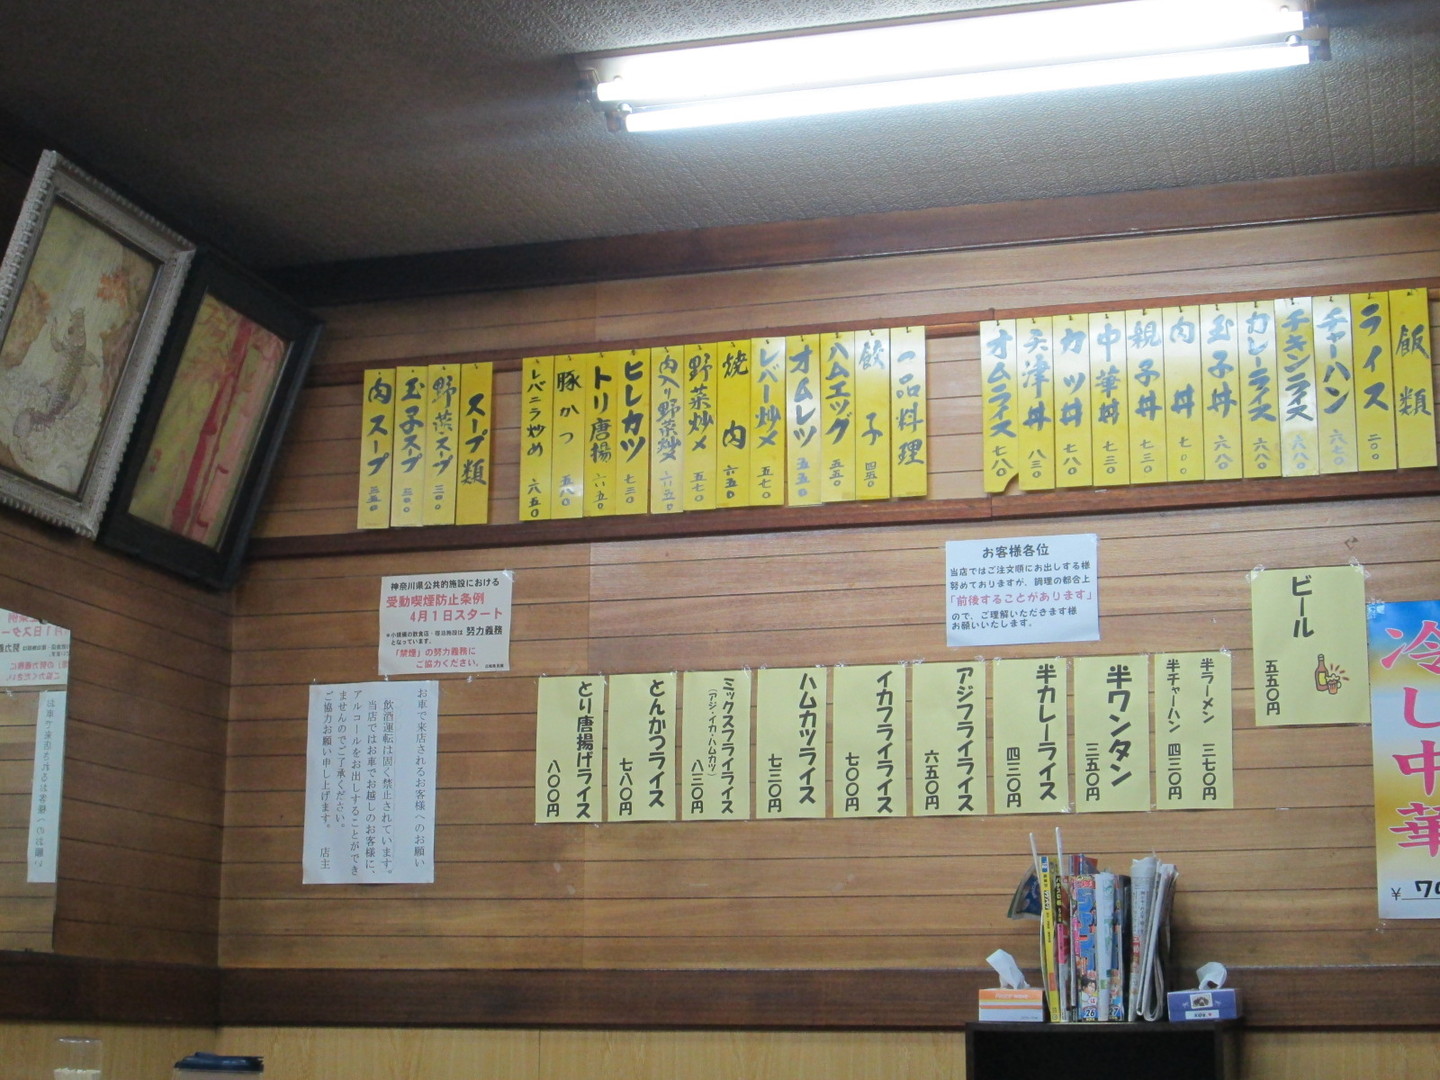 飯類
ライス 二〇〇
チャーハン 六三〇
チキンライス 六八〇
カレーライス 六八〇
玉子丼 六八〇
肉丼
親子丼 七三〇
中華丼 七三〇
カツ丼 七八〇
天津丼 八三〇
オムライス 七八〇
一品料理
餃子 四五〇
ハムエッグ 五五〇
オムレツ 五五〇
レバー炒メ 五七〇
焼肉 六五〇
野菜炒メ 五七〇
肉入り野菜炒 六五〇
ヒレカツ 七三〇
トリ唐揚 六五〇
豚かつ 五八〇
レバニラ炒め 六五〇
スープ類
野菜スープ 三〇〇
玉子スープ 三〇〇
肉スープ 三五〇
お客様各位
当店ではご注文順にお出しする様
努めておりますが、調理の都合上
「前後することがあります」
ので、ご理解いただきます様
お願いいたします。
神奈川県公共的施設における
受動喫煙防止条例
4月1日スタート
＊小規模の飲食店・宿泊施設は 努力義務
となっています。
「禁煙」の努力義務に
ご協力ください。
ビール
五五〇円
冷し中華
¥
半ラーメン 三七〇円
半チャーハン 四三〇円
半ワンタン
三五〇円
半カレーライス
四三〇円
アジフライライス
六五〇円
イカフライライス
七〇〇円
ハムカツライス
七三〇円
ミックスフライライス
（アジ・イカ・ハムカツ）
八三〇円
とんかつライス
七八〇円
とり唐揚げライス
八〇〇円
お車で来店されるお客様へのお願い
飲酒運転は固く禁止されています。
当店ではお車でお越しのお客様に、
アルコールをお出しすることができ
ませんのでご了承ください。
ご協力お願い申し上げます。 店主